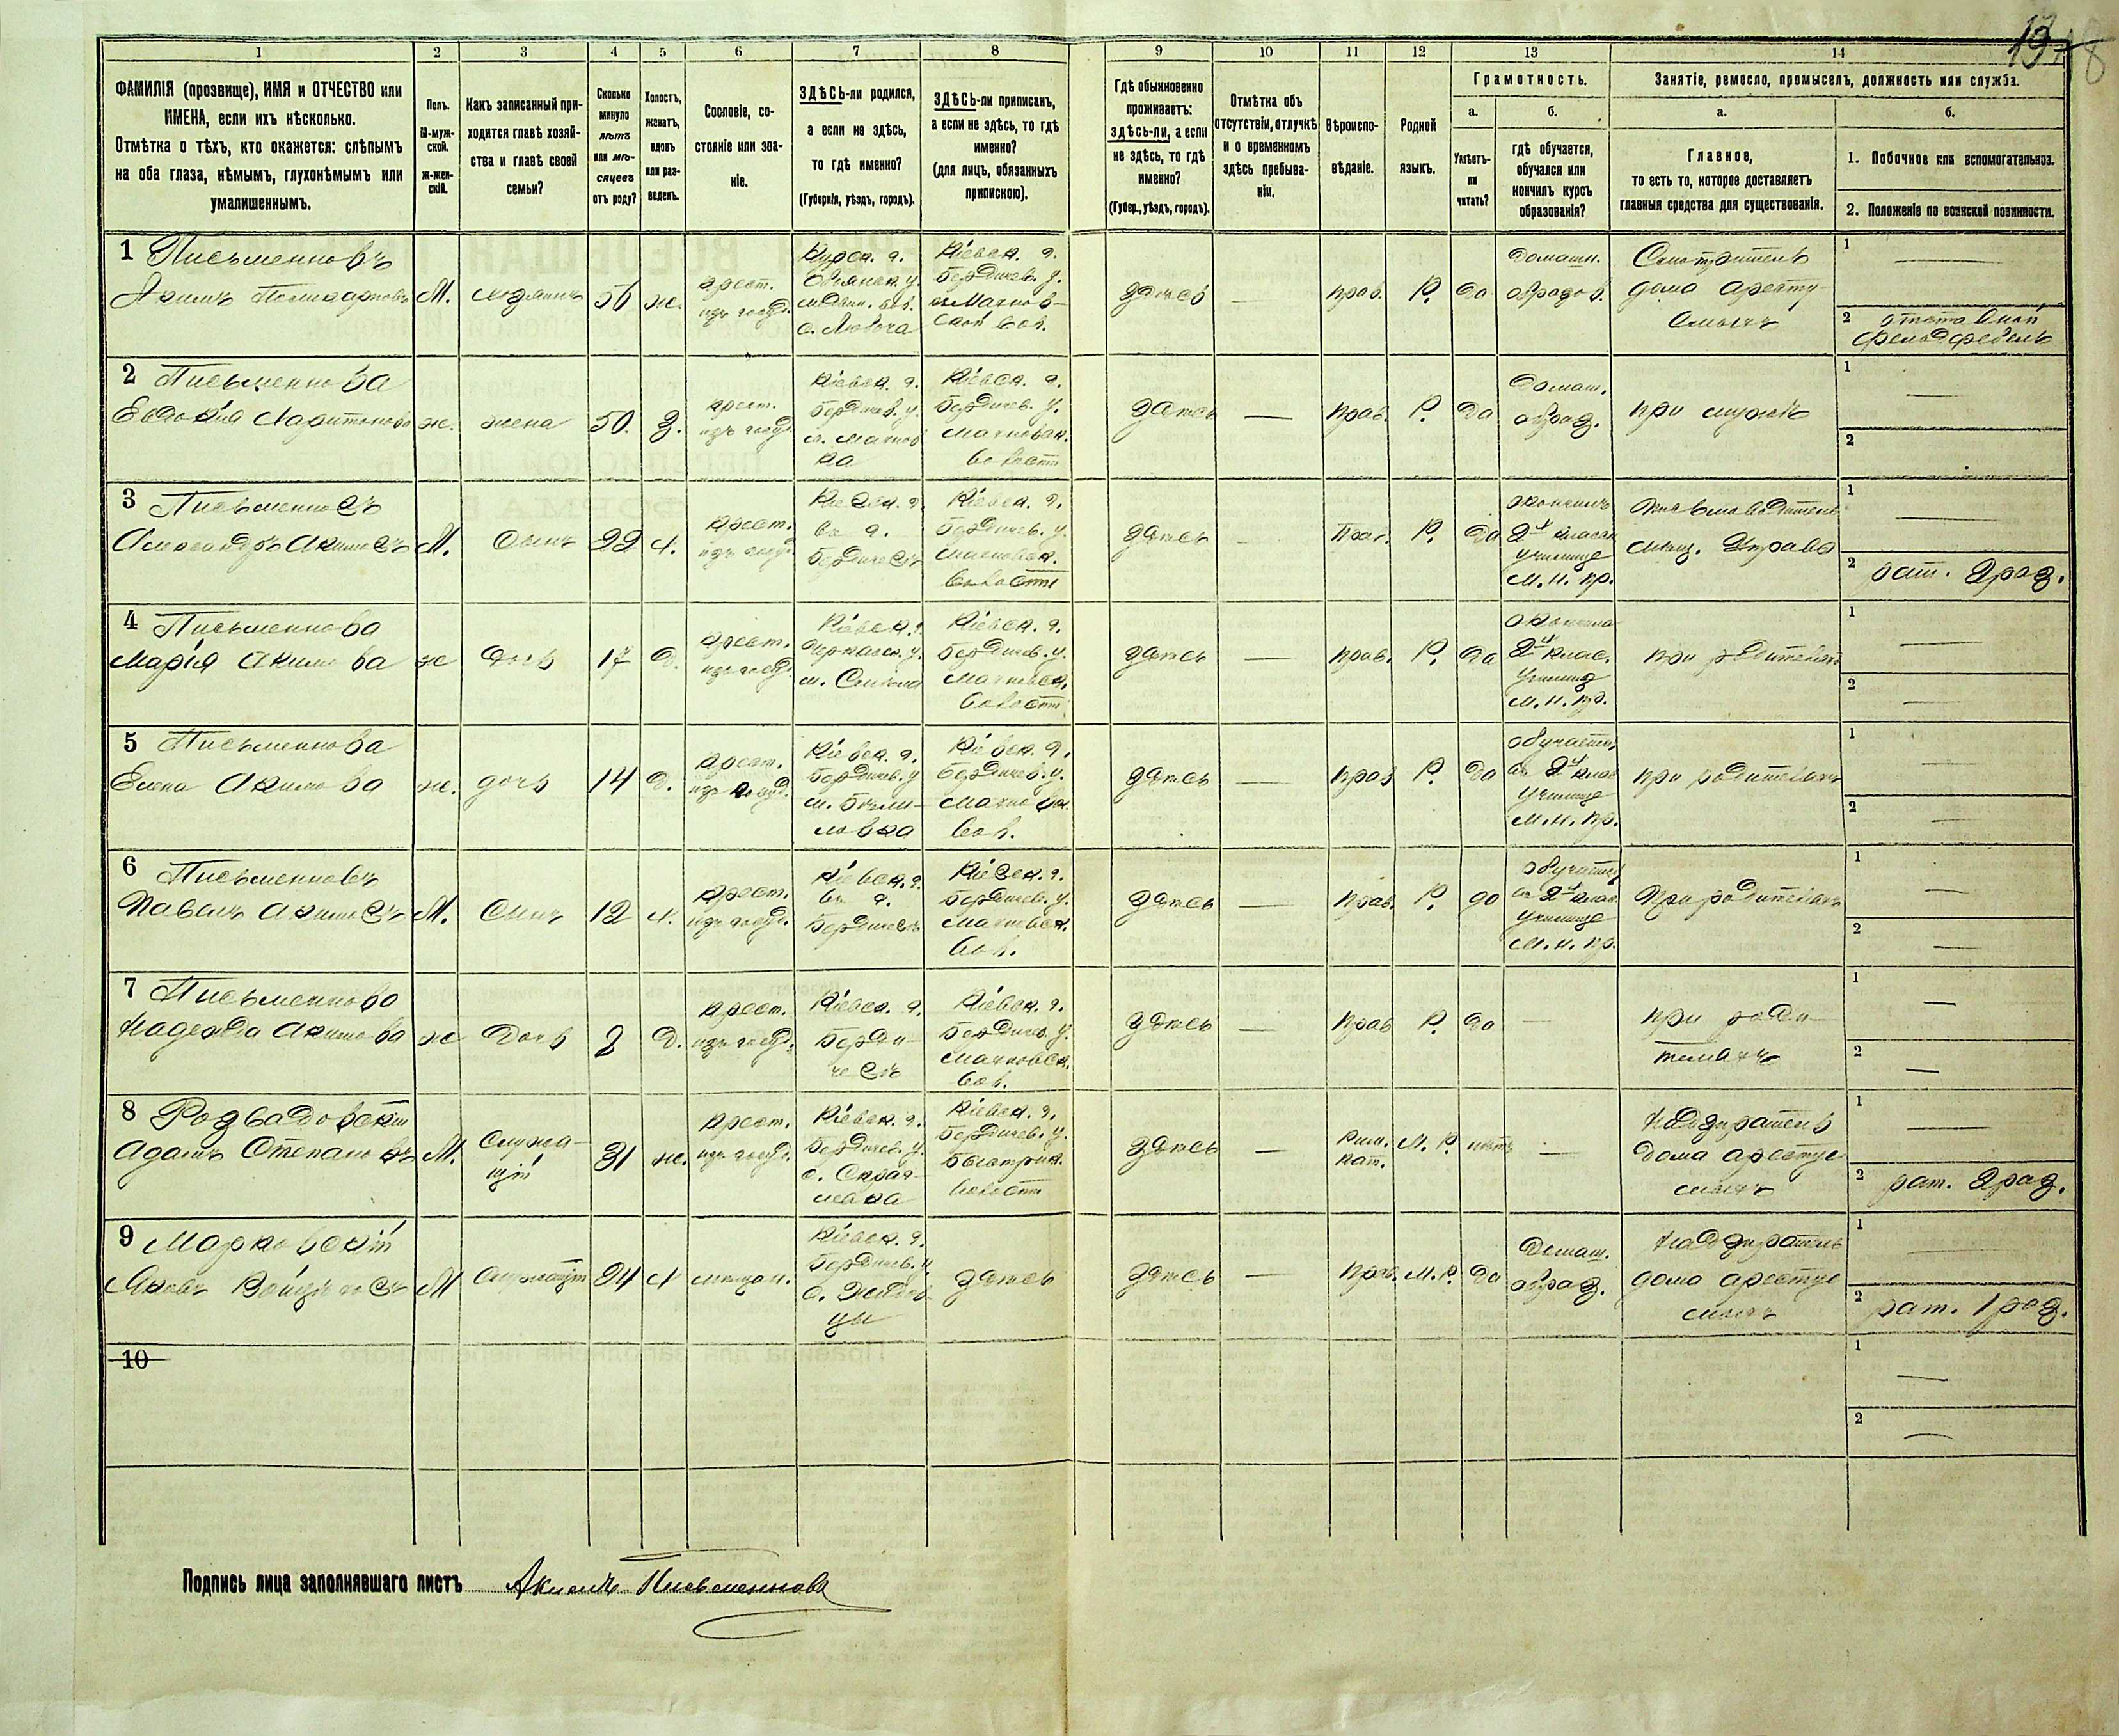 13
18
1
2
3
4
5
6
7
8
9
10
11
12
13
14
ФАМИЛІЯ (прозвище), ИМЯ и ОТЧЕСТВО или
ИМЕНА, если ихъ нѣсколько.
Отмѣтка о тѣхъ, кто окажется: слѣпымъ
на оба глаза, нѣмымъ, глухонѣмымъ или
умалишеннымъ.
Полъ.
М-муж-
ской.
ж-жен-
скій.
Какъ записанный при-
ходится главѣ хозяй-
ства и главѣ своей
семьи?
Сколько
минуло
лѣтъ
или мѣ-
сяцевъ
отъ роду?
Холостъ,
женатъ,
вдовъ
или раз-
веденъ.
Сословіе, со-
стояніе или зва-
ніе.
ЗДѢСЬ-ли родился,
а если не здѣсь,
то гдѣ именно?
(Губернія, уѣздъ, городъ).
ЗДѢСЬ-ли приписанъ,
а если не здѣсь, то гдѣ
именно?
(для лицъ, обязанныхъ
припискою).
Гдѣ обыкновенно
проживаетъ:
здѣсь-ли, а если
не здѣсь, то гдѣ
именно?
(Губер., уѣздъ, городъ).
Отмѣтка объ
отсутствіи, отлучкѣ
и о временномъ
здѣсь пребыва-
ніи.
Вѣроиспо-
вѣданіе.
Родной
языкъ.
Грамотность.
а.
Умѣетъ-
ли
читать?
б.
гдѣ обучается,
обучался или
кончилъ курсъ
образованія?
Занятіе, ремесло, промыселъ, должность или служба.
а.
Главное,
то есть то, которое доставляетъ
главныя средства для существованія.
б.
1. Побочное или вспомогательное.
2. Положеніе по воинской повинности.
1 Письменновъ
Акимъ
М.
хозяинъ
56
ж.
крест.
изъ госуд.
Курск. г.
Обоянск. у.
Кіевск. г.
Бердичев. у.
Махнов-
ской вол.
здѣсь
—
прав.
Р.
да
домашн.
образов.
Смотритель
дома аресту-
емыхъ
1 —
2 отставной
фельдфебель
2 Письменнова
Евдокія Харитонова
ж.
жена
50.
з.
крест.
изъ госуд.
Кіевск. г.
Бердичев. у.
м. Махнов
ка
Кіевск. г.
Бердичев. у.
Махновск.
волости
здѣсь
—
прав.
Р.
да
Домаш.
образ.
при мужѣ
1 —
2
3 Письменновъ
Александръ Акимовъ
М.
Сынъ
22
х.
крест.
изъ госуд.
Кіевск. г.
въ г.
Бердичевъ
Кіевск. г.
Бердичев. у.
Махновск.
волости
здѣсь
—
Прав.
Р.
да
окончилъ
2х класн.
училище
М. н. пр.
письмоводитель
мѣщ. Управы
1 —
2 рат. 2 раз.
4 Письменнова
Марія Акимова
ж
дочь
17
д.
крест.
изъ госуд.
Кіевск. г.
Черкасск. у.
м. Смѣла
Кіевск. г.
Бердичев. у.
Махновск.
волости
здѣсь
—
прав.
Р.
да
окончила
2х клас.
училище
М. н. пр.
при родителяхъ
1 —
2 —
5 Письменнова
Елена Акимова
ж.
дочь
14
д.
крест.
изъ госуд.
Кіевск. г.
Бердичев. у
м. Бѣли-
ловка
Кіевск. г.
Бердичев. у.
Махновск.
вол.
здѣсь
—
прав
Р.
да
обучается
въ 2х клас
училище
М. н. пр.
при родителяхъ
1 —
2 —
6 Письменновъ
Павелъ Акимовъ
М.
Сынъ
12
х.
крест.
изъ госуд.
Кіевск. г.
въ г.
Бердичевѣ
Кіевск. г.
Бердичев. у.
Махновск.
вол.
здѣсь
—
прав.
Р.
да
обучается
въ 2х клас.
училище
М. н. пр.
При родителяхъ
1 —
2 —
7 Письменнова
Надежда Акимова
ж
Дочь
2
д.
крест.
изъ госуд.
Кіевск. г.
Берди-
чевъ
Кіевск. г.
Бердичев. у.
Махновск.
вол.
здѣсь
—
прав
Р.
да
—
при роди-
теляхъ
1 —
2 —
8 Розвадовскій
Адамъ Степановъ
М.
Служа-
щій
31
ж.
крест.
изъ госуд.
Кіевск. г.
Бердичев. у.
с. Скраг-
левка
Кіевск. г.
Бердичев. у.
Быстрик.
волости
здѣсь
—
Рим.
кат.
М. Р.
нѣтъ
—
Надзиратель
дома арестуе
мыхъ
1 —
2 рат. 2 раз.
9 Марковскій
Яковъ
М
Служащій
24
х
мѣщан.
Кіевск. г.
Бердичев. у.
здѣсь
здѣсь
—
Прав.
М. Р.
да
Домаш.
образ.
Надзиратель
дома арестуе
мыхъ
1 —
2 рат. 1 раз.
10
1 —
2 —
Подпись лица заполнявшаго листъ Акимъ Письменновъ